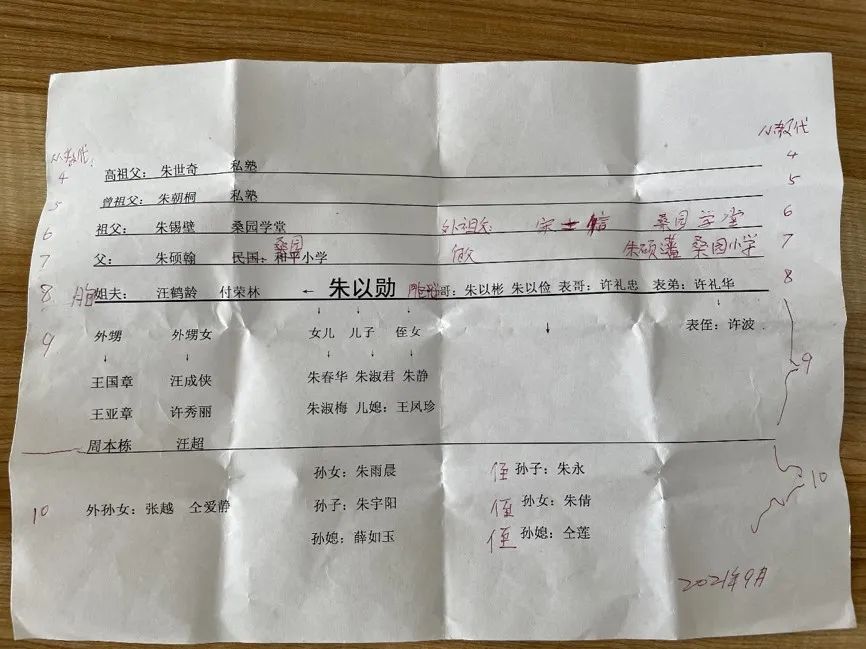 从教代
从教代:
4 高祖父: 朱世奇 私塾 4
5 曾祖父: 朱朝桐 私塾 5
6 祖父: 朱锡璧 桑园学堂 外祖父: 宋士信 桑园学堂 6
桑园
7 父: 朱硕翰 民国、和平小学 朱硕藩 桑园小学 7
8 胞姐夫: 汪鹤龄 付荣林 ← 朱以勋 哥: 朱以彬 朱以俭 表哥: 许礼忠 表弟: 许礼华 8
9 外甥 外甥女 女儿 儿子 侄女 表侄: 许波
王国章 汪成侠 朱春华 朱淑君 朱静 9
王亚章 许秀丽 朱淑梅 儿媳: 王凤珍
周本栋 汪超
孙女: 朱雨晨 侄孙子: 朱永 10
10 外孙女: 张越 仝爱静 孙子: 朱宇阳 侄孙女: 朱倩
孙媳: 薛如玉 侄孙媳: 仝莲
2021年9月